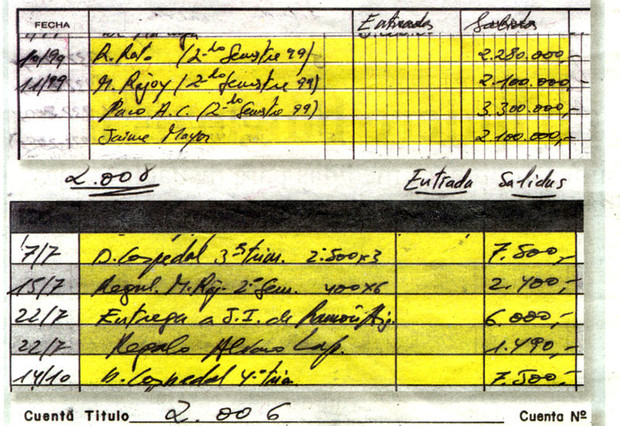 FECHA Entradas Salidas
10/99 R. Rato (2º Semestre 99) 2.280.000,-
11/99 M. Rajoy (2º Semestre 99) 2.100.000,-
Paco A.C. (2º Semestre 99) 3.300.000,-
Jaime Mayor 2.100.000,-
2.008 Entrada Salidas
7/7 D. Cospedal 3º trim. 2.500x3 7.500,-
15/7 M. Raj. 2º Sem. 400x6 2.400,-
22/7 Entrega a J.I. de 6.000,-
22/7 Regalo Alvaro Lap. 1.490,-
14/10 D. Cospedal 4º trim. 7.500,-
Cuenta Titulo 2.006 Cuenta Nº